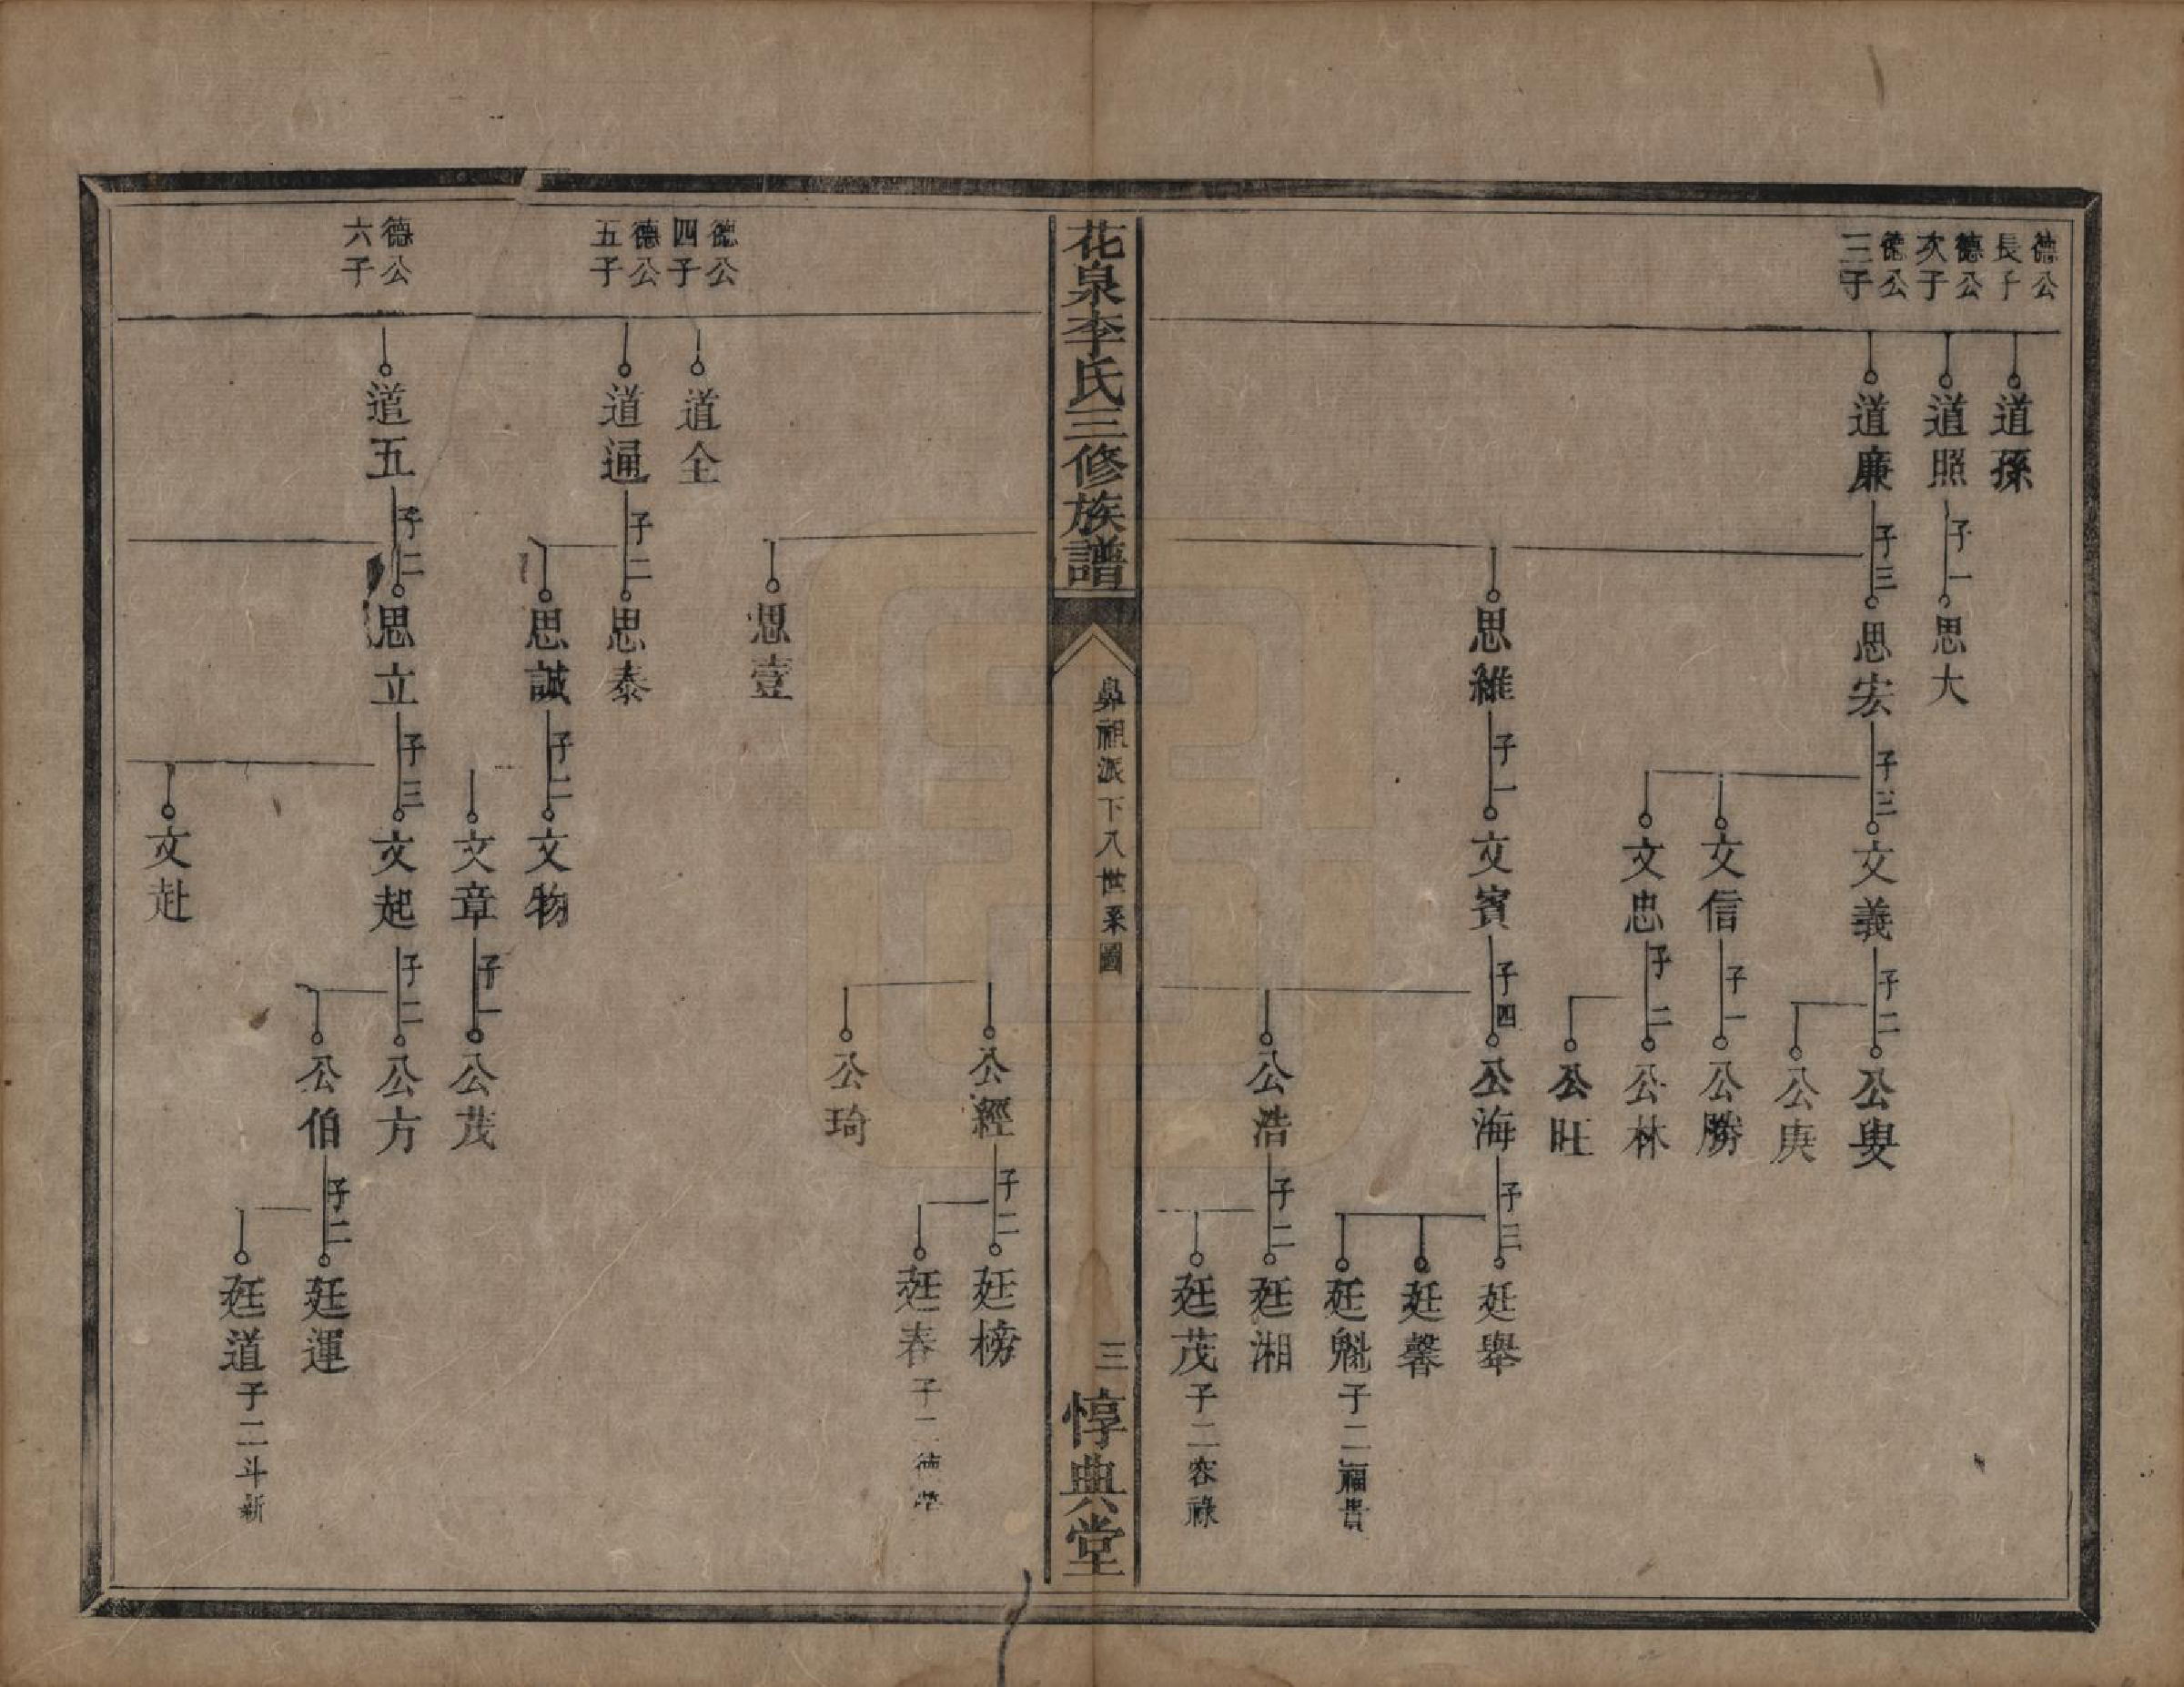 德公長子
道孫
德公次子
道照
子一
思大
德公三子
道廉
子三
思宏
子三
文義
子二
公叟
公庚
文信
子一
公勝
文忠
子二
公林
公旺
思維
子一
文賓
子四
公海
子三
廷舉
廷馨
廷魁
子二福貴
公浩
子二
廷湘
廷茂
子二容祿
花泉李氏三修族譜
鼻祖派下八世系圖
三
惇典堂
公經
子二
廷榜
廷春
子二德
公琦
思壹
德公四子
道全
德公五子
道通
子二
思泰
思誠
子二
文物
文章
子一
公茂
德公六子
道五
子二
思立
子三
文起
子二
公方
公伯
子二
廷運
廷道
子二斗新
文赴